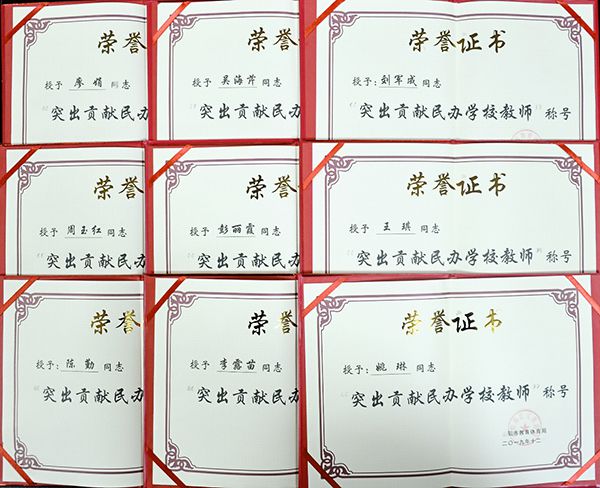 荣誉
授予 廖娟 同志
突出贡献民办
荣誉
授予 吴海芹 同志
突出贡献民办
荣誉证书
授予:刘军成 同志
“突出贡献民办学校教师”称号
荣誉
授予 周玉红 同志
突出贡献民办
荣誉
授予 彭丽霞 同志
突出贡献民办
荣誉证书
授予 王琪 同志
“突出贡献民办学校教师”称号
荣誉
授予:陈勤 同志
突出贡献民办
荣誉
授予 李露苗 同志
突出贡献民办
荣誉证书
授予:姚琳 同志
“突出贡献民办学校教师”称号
教育体育局
二〇一九年十二